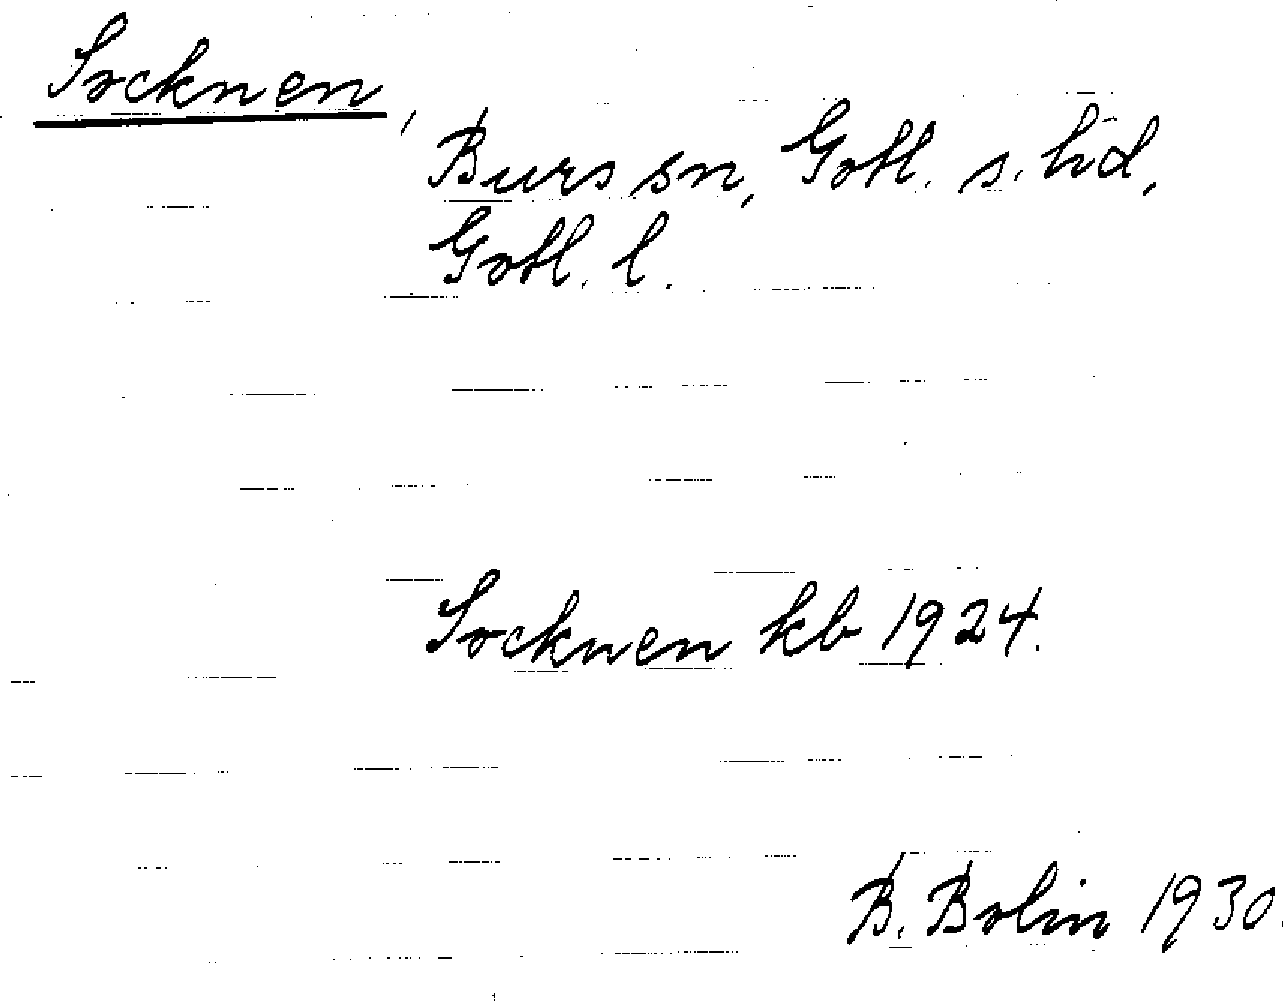 Socknen,
Burs sn, Gotl. s. hd,
Gotl. l.
Socknen kb 1924.
B. Bolin 1930.